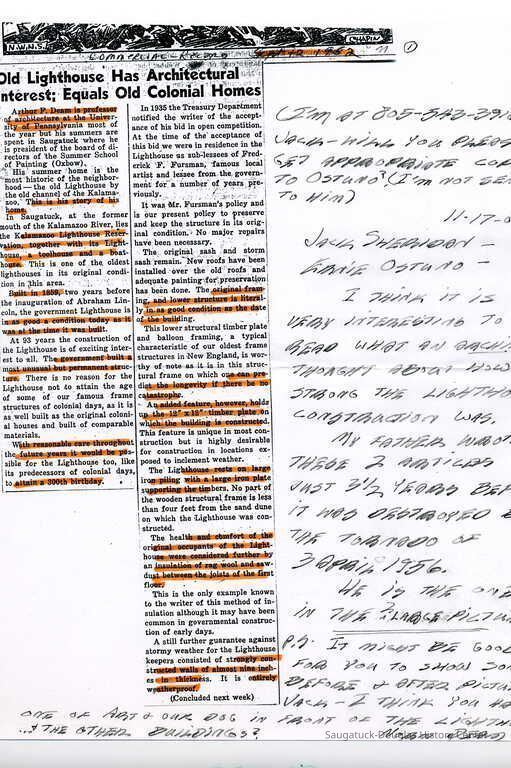 N.W.M.S.
CHAPIN
COMMERCIAL RECORD
1952
11
1
Old Lighthouse Has Architectural
Interest; Equals Old Colonial Homes
Arthur F. Deam is professor
of architecture at the Univer-
sity of Pennsylvania most of
the year but his summers are
spent in Saugatuck where he
is president of the board of di-
rectors of the Summer School
of Painting (Oxbow).
His summer home is the
most historic of the neighbor-
hood — the old Lighthouse by
the old channel of the Kalama-
zoo. This is his story of his
home.
In Saugatuck, at the former
mouth of the Kalamazoo River, lies
the Kalamazoo Lighthouse Reser-
vation, together with its Light-
house, a toolhouse and a boat-
house. This is one of the oldest
lighthouses in its original condi-
tion in this area.
Built in 1859, two years before
the inauguration of Abraham Lin-
coln, the government Lighthouse is
in as good a condition today as it
was at the time it was built.
At 93 years the construction of
the Lighthouse is of exciting inter-
est to all. The government built a
most unusual but permanent struc-
ture. There is no reason for the
Lighthouse not to attain the age
of some of our famous frame
structures of colonial days, as it is
as well built as the original coloni-
al houses and built of comparable
materials.
With reasonable care throughout
the future years it would be pos-
sible for the Lighthouse too, like
its predecessors of colonial days,
to attain a 300th birthday.
In 1935 the Treasury Department
notified the writer of the accept-
ance of his bid in open competition.
At the time of the acceptance of
this bid we were in residence in the
Lighthouse as sub-lessees of Fred-
erick F. Fursman, famous local
artist and lessee from the govern-
ment for a number of years pre-
viously.
It was Mr. Fursman's policy and
is our present policy to preserve
and keep the structure in its orig-
inal condition. No major repairs
have been necessary.
The original sash and storm
sash remain. New roofs have been
installed over the old roofs and
adequate painting for preservation
has been done. The original fram-
ing, and lower structure is literal-
ly in as good condition as the date
of the building.
This lower structural timber plate
and balloon framing, a typical
characteristic of our oldest frame
structures in New England, is wor-
thy of note as it is in this struc-
tural frame on which one can pre-
dict the longevity if there be no
catastrophe.
An added feature, however, holds
up the 12" x 12" timber plate on
which the building is constructed.
This feature is unique in most con-
struction but is highly desirable
for construction in locations ex-
posed to inclement weather.
The Lighthouse rests on large
iron piling with a large iron plate
supporting the timbers. No part of
the wooden structural frame is less
than four feet from the sand dune
on which the Lighthouse was con-
structed.
The health and comfort of the
original occupants of the Light-
house were considered further by
an insulation of rag wool and saw-
dust between the joists of the first
floor.
This is the only example known
to the writer of this method of in-
sulation although it may have been
common in governmental construc-
tion of early days.
A still further guarantee against
stormy weather for the Lighthouse
keepers consisted of strongly con-
structed walls of almost nine inch-
es in thickness. It is entirely
weatherproof.
(Concluded next week)
(I'M AT 805-543-
JACK - WILL YOU PLEAS
GET APPROPRIATE COP
TO OSTUNO? (I'M NOT SE
TO HIM)
11-17-0
JACK SHERIDAN -
ERNIE OSTUNO -
I THINK IT IS
VERY INTERESTING TO
READ WHAT AN ARCHI
THOUGHT ABOUT HOW
STRONG THE LIGHTHO
CONSTRUCTION WAS.
MY FATHER WROT
THESE 2 ARTICLES
JUST 3½ YEARS BEF
IT WAS DESTROYED B
THE TORNADO OF
3 APRIL 1956.
HE IS THE ONE
IN THE 2 LARGE PICTUR
P.S. IT MIGHT BE GOOD
FOR YOU TO SHOW SOM
BEFORE & AFTER PICTU
JACK - I THINK YOU HA
ONE OF ART & OUR DOG IN FRONT OF THE LIGHTH
& THE OTHER BUILDINGS?
Saugatuck-Douglas History Center